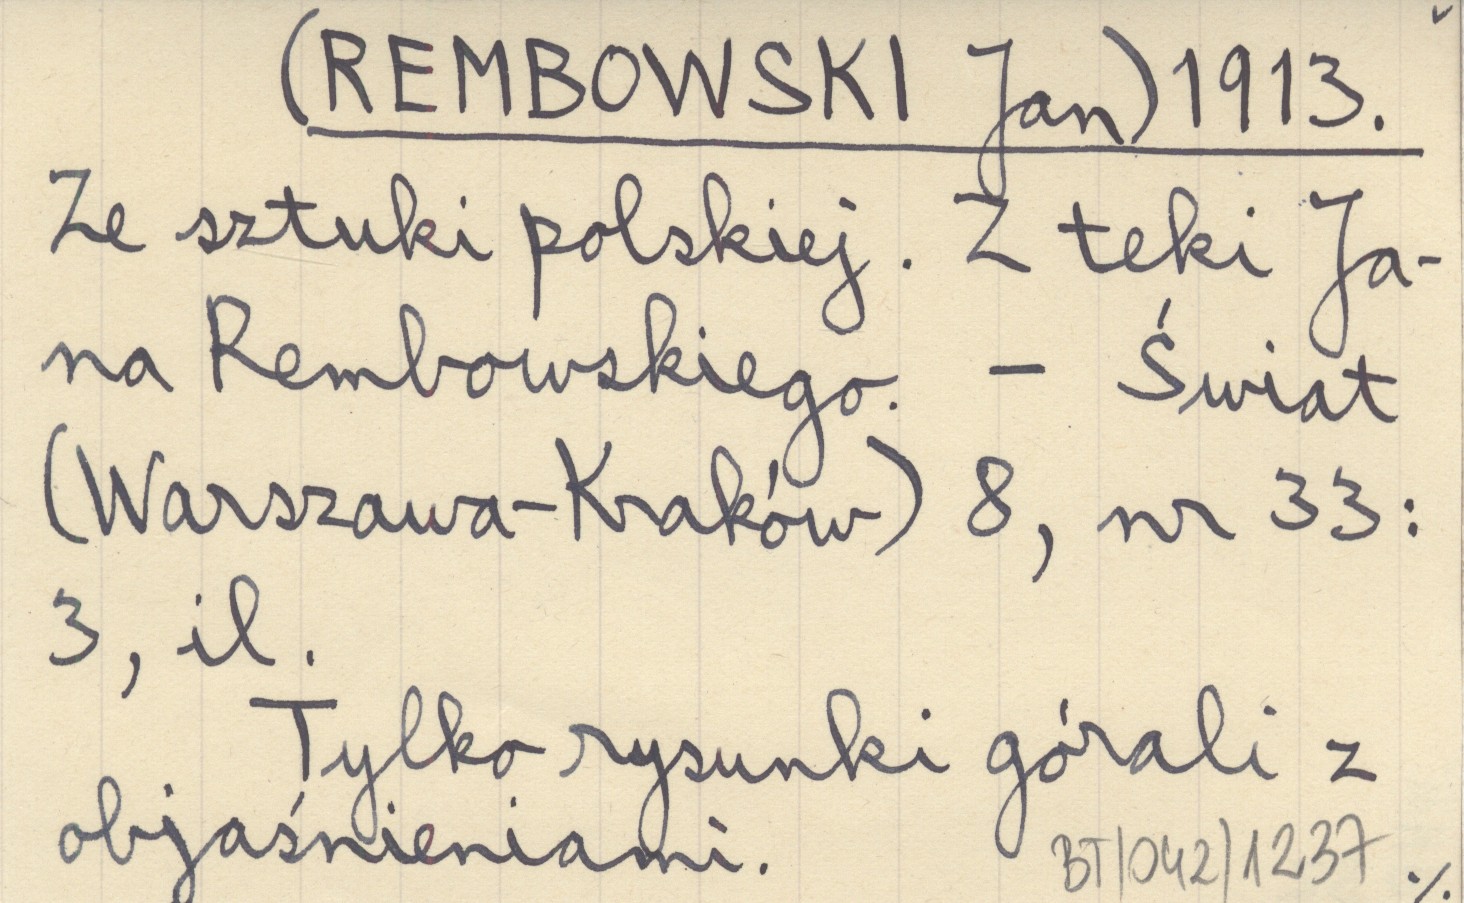 (REMBOWSKI Jan) 1913.
Ze sztuki polskiej. Z teki Ja-
na Rembowskiego. - Świat
(Warszawa-Kraków) 8, nr 33:
3, il.
Tylko rysunki górali z
objaśnieniami.
BT/042/1237 ./.